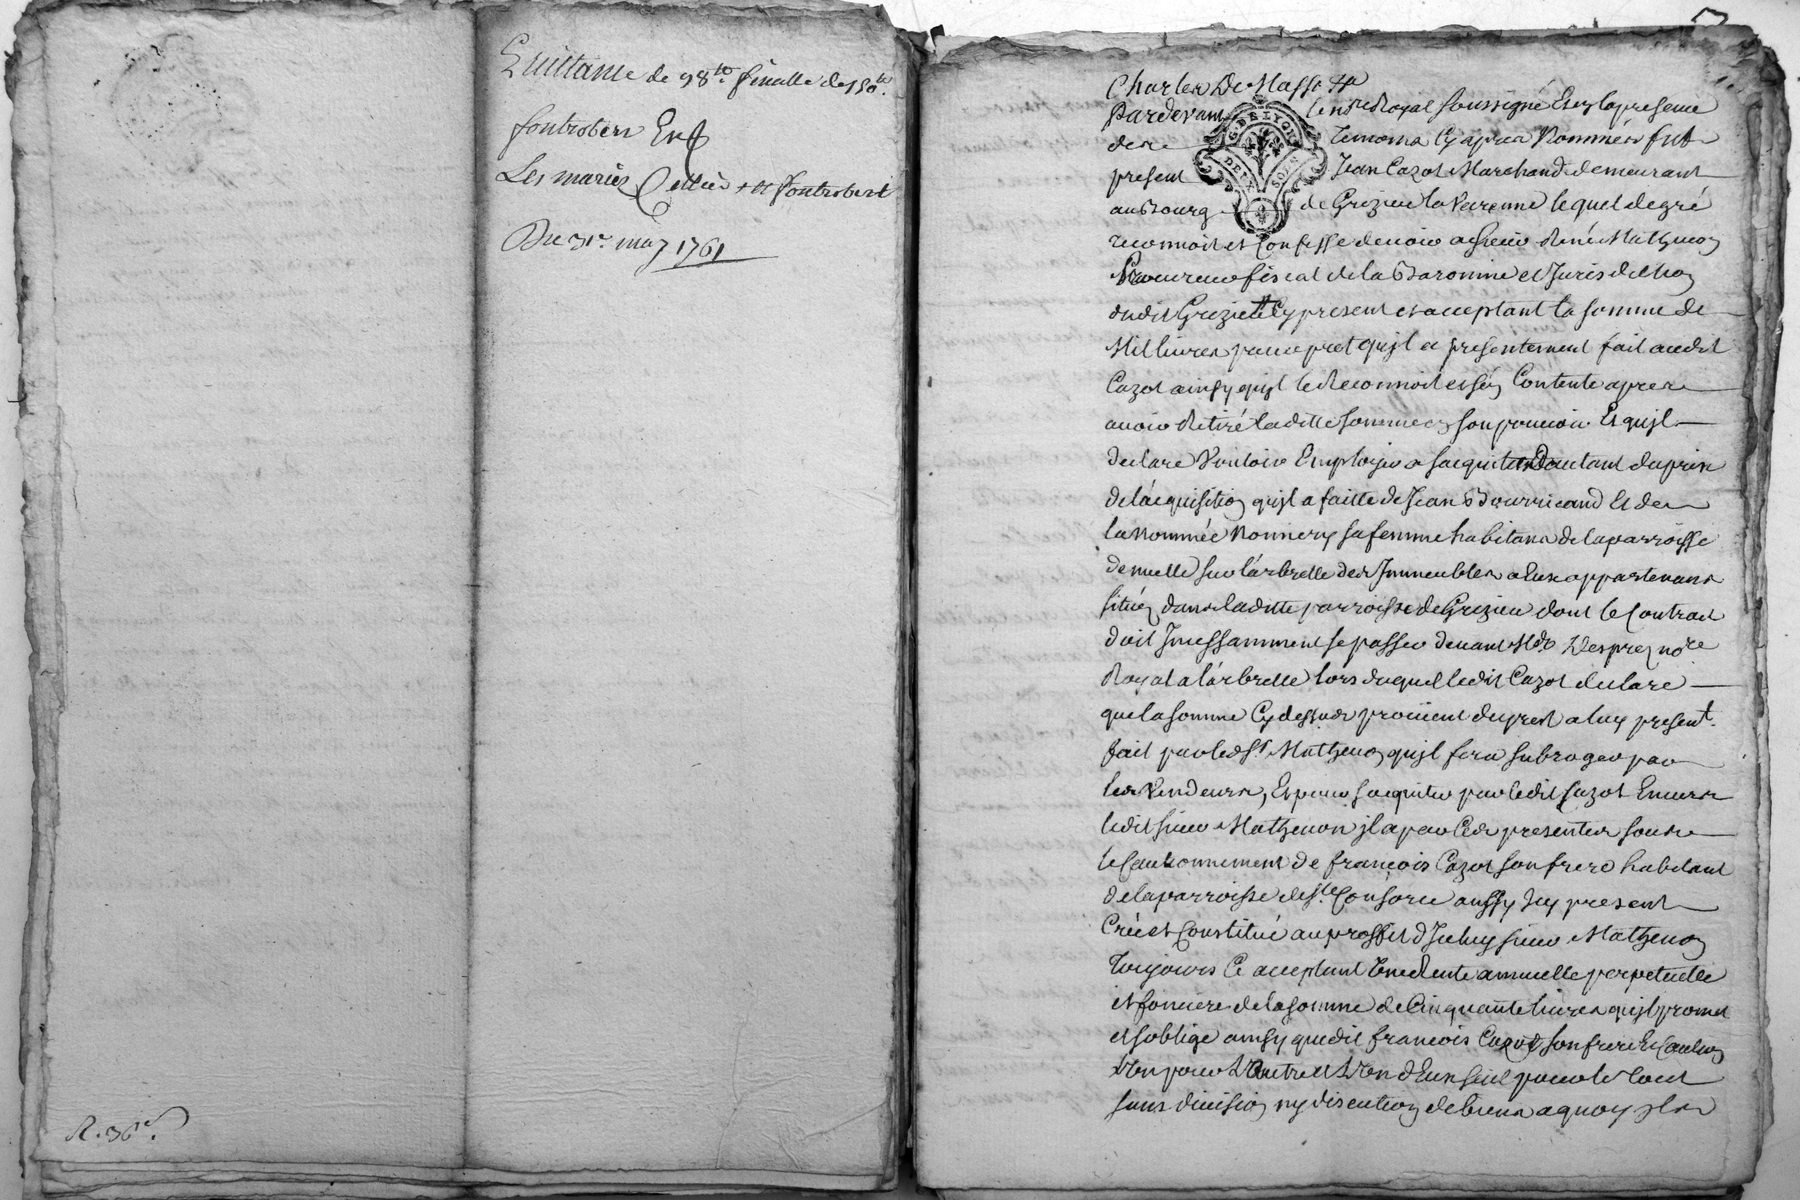 Quittance de 98 lt finalle de 150 lt
fontrobert Et
Les mariez Cellier et fontrobert
Du 31e may 1761
R. 36 s.
Charles De Masso
Pardevant le nore Royal soussigné Et en la presence
des temoins Cy apres Nommés fut
G. DE LYON
DEUX SOLS
present Jean Cazot Marchand demeurant
au Bourg de Grezieu la Varenne lequel de gré
reconnoit et Confesse devoir a sieur René Mathevon
Procureur fiscal de la Baronnie et Jurisdiction
dudit Grezieu Cy present et acceptant la somme de
Mil livres pour pret qu'jl a presentement fait audit
Cazot ainsy qu'jl le Reconnoit et s'en Contente apres
avoir Retiré laditte somme en son pouvoir Et qu'jl
declare Vouloir Employer a s'acquitter d'autant du prix
de l'acquisition qu'jl a faitte de Jean Bourricand Et de
la nommée Nonnery sa femme habitans de la parroisse
de nuelle sur l'arbrelle des Jmmeubles a Eux appartenans
situéz dans laditte parroisse de Grezieu dont le Contrat
doit Jncessamment se passer devant Me Desprez nore
Royal a l'arbrelle lors duquel ledit Cazot declare
que la somme Cy dessus provient du prest a luy present.
fait par led. sr. Mathevon qu'jl fera subroger par
les Vendeurs, Et pour s'acquitter par ledit Cazot Envers
ledit sieur Mathevon jl a par Ces presentes sous
le Cautionnement de françois Cazot son frere habitant
de la parroisse de ste. Consorce aussy Jcy present
Créé et Constitué au proffit d'Jceluy sieur Mathevon
toujours Ce acceptant Une Rente annuelle perpetuelle
et fonciere de la somme de Cinquante livres qu'jl promet
et s'oblige ainsy que dit françois Cazot son frere Et Caution
l'Un pour l'Autre et l'Un d'Eux seul pour le tout
sans division ny discution de biens a quoy jls